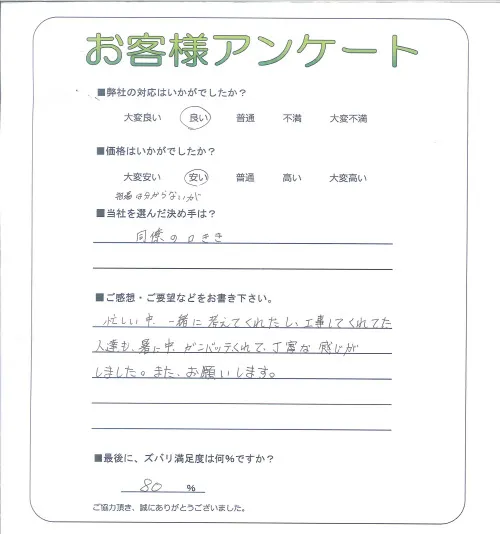 お客様アンケート
■弊社の対応はいかがでしたか？
大変良い 良い 普通 不満 大変不満
■価格はいかがでしたか？
大変安い 安い 普通 高い 大変高い
は分からないが
■当社を選んだ決め手は？
同僚の口きき
■ご感想・ご要望などをお書き下さい。
忙しい中、一緒に考えてくれたし、工事してくれてた
人達も、暑い中、ガンバッてくれて、丁寧な感じが
しました。また、お願いします。
■最後に、ズバリ満足度は何％ですか？
80 %
ご協力頂き、誠にありがとうございました。